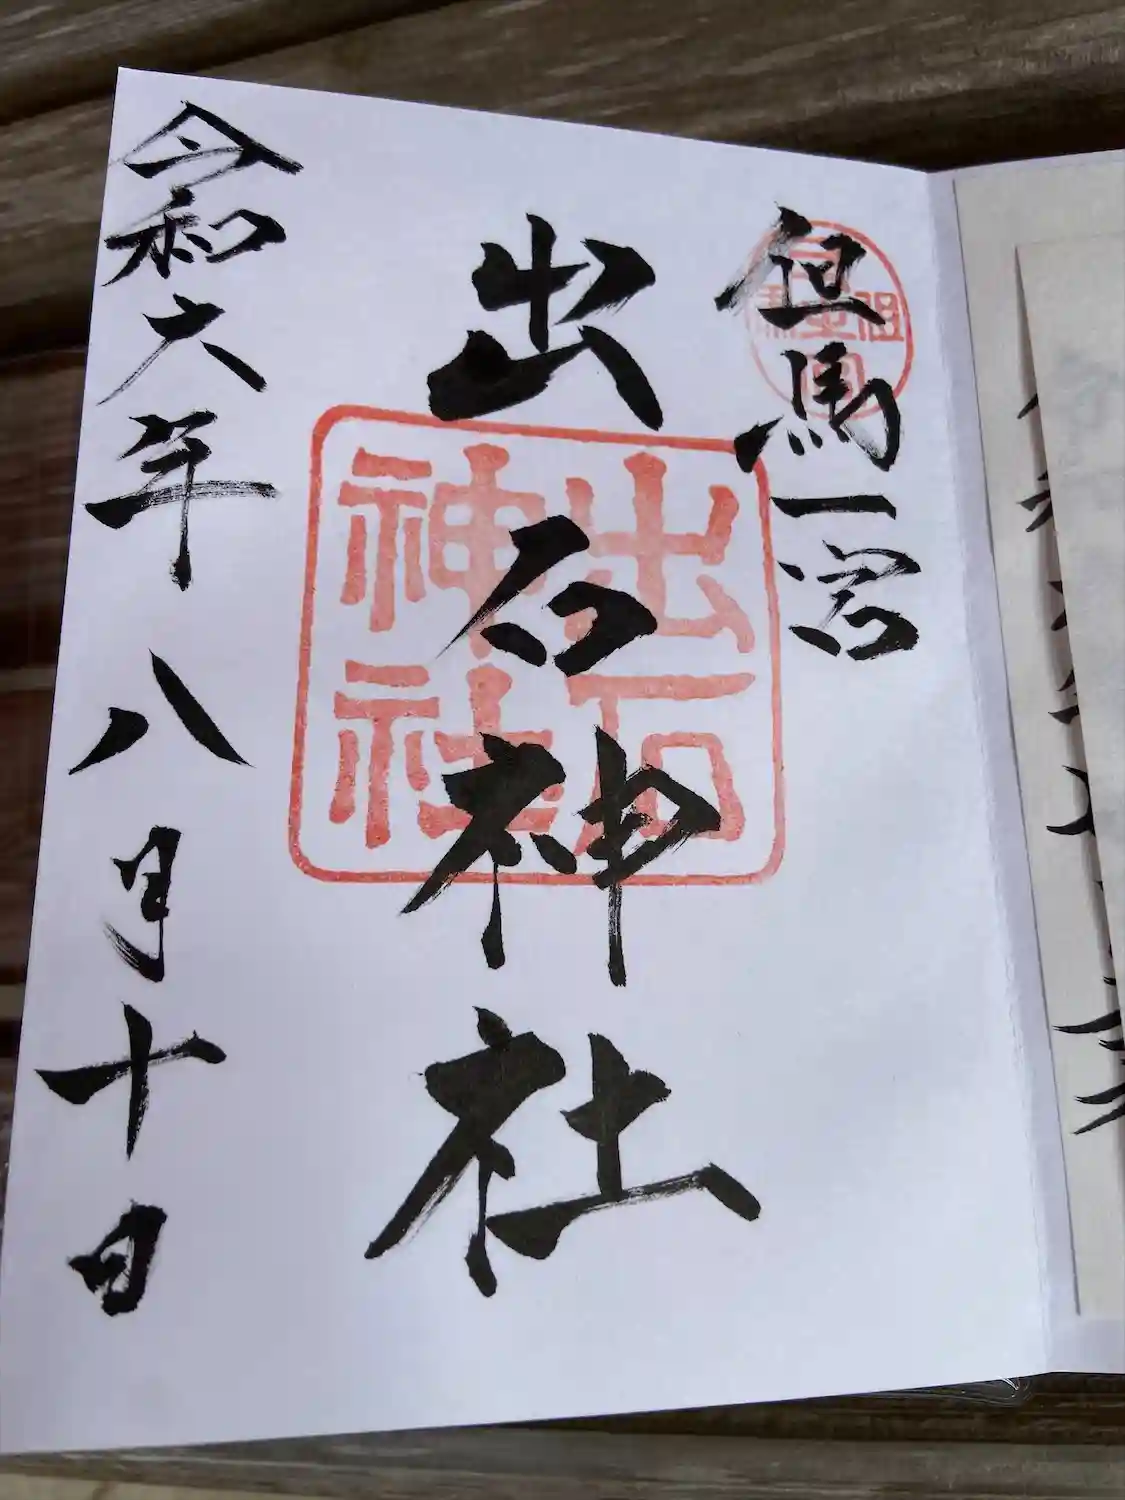 但馬一宮
出石神社
出石
神社
令和六年八月十日